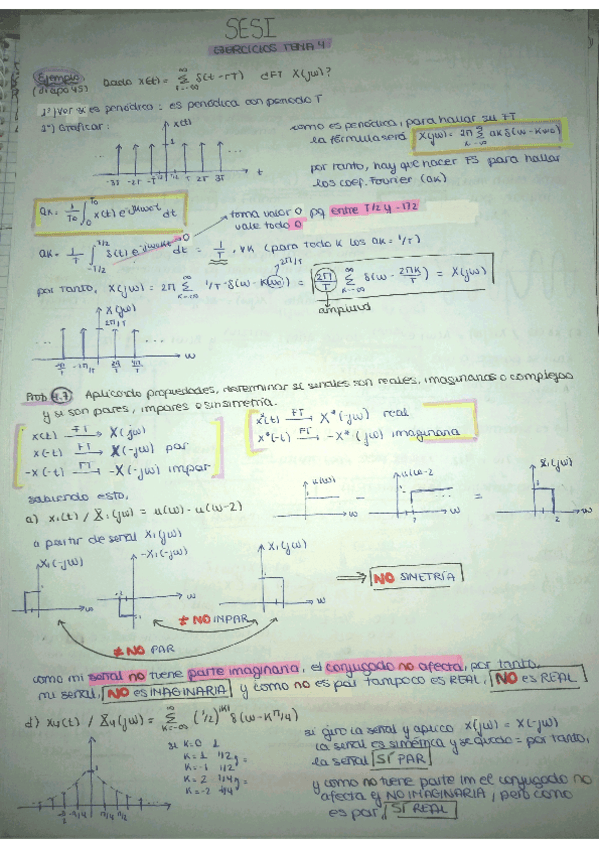 SESI
EJERCICIOS TEMA 4
Ejemplo (diapo 45) Dado x(t) = Σ_{r=-∞}^{∞} δ(t-rT) ¿FT X(jω)?
1º) Ver si es periódica: es periódica con periodo T
2º) Graficar: x(t)
1
... ...
-3T -2T -T T 2T 3T t
como es periódica, para hallar su FT
la fórmula será X(jω) = 2π Σ_{k=-∞}^{∞} ak δ(ω-kω0)
por tanto, hay que hacer FS para hallar
los coef. Fourier (ak)
ak = 1/T0 ∫_0^{T0} x(t) e^{-jkω0t} dt
toma valor 0 pq entre T/2 y -T/2
vale todo 0
ak = 1/T ∫_{-T/2}^{T/2} δ(t) e^{-jkω0t} dt = 1/T, ∀k (para todo k los ak = 1/T)
2π/T
por tanto, X(jω) = 2π Σ_{k=-∞}^{∞} 1/T · δ(ω-kω0) = 2π/T Σ_{k=-∞}^{∞} δ(ω - 2πk/T) = X(jω)
amplitud
X(jω)
2π/T
... ...
-4π/T -2π/T 2π/T 4π/T ω
Prob 4.7) Aplicando propiedades, determinar si señales son reales, imaginarias o complejas
y si son pares, impares o sin simetría.
x(t) FT→ X(jω)
x(-t) FT→ X(-jω) par
-x(-t) FT→ -X(-jω) impar
x*(t) FT→ X*(-jω) real
x*(-t) FT→ -X*(jω) imaginaria
sabiendo esto,
a) x1(t) / X1(jω) = u(ω) - u(ω-2)
u(ω) ω - u(ω-2 2 ω = X1(jω) 2 ω
a partir de señal X1(jω)
X1(-jω) ω
-X1(-jω) ω
X1(jω) ω
⟹ NO SIMETRÍA
≠ NO INPAR
≠ NO PAR
como mi señal no tiene parte imaginaria, el conjugado no afecta, por tanto,
mi señal, NO es IMAGINARIA y como no es par tampoco es REAL, NO es REAL
d) x4(t) / X4(jω) = Σ_{k=-∞}^{∞} (1/2)^{|k|} δ(ω-kπ/4)
si k=0 1
k=1 1/2
k=-1 1/2
k=2 1/4
k=-2 1/4
1
-π/4 π/4 π/2
si giro la señal y aplico X(jω) = X(-jω)
la señal es simétrica y se queda = por tanto,
la señal SÍ PAR
y como no tiene parte im el conjugado no
afecta y NO IMAGINARIA, pero como
es par, SÍ REAL